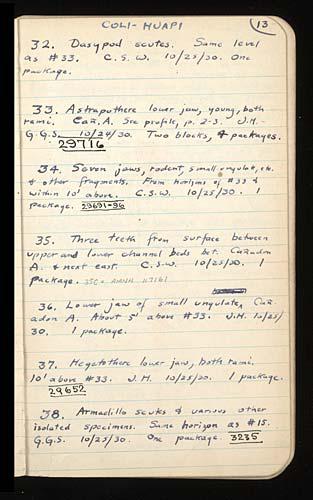 COLI-HUAPI
13
32. Dasypod scutes. Same level
as #33. C.S.W. 10/25/30. One
package.
33. Astrapothere lower jaw, young, both
rami. Cañ. A. See profile, p. 2-3. J.H.-
G.G.S. 10/24/30. Two blocks, 4 packages.
29716
34. Seven jaws, rodent, small ungulate, etc.
& other fragments. From horizons of #33 &
within 10' above. C.S.W. 10/25/30. 1
package. 29691-96
35. Three teeth from surface between
upper and lower channel beds bet. Cañadon
A. & next east. C.S.W. 10/25/30. 1
package.
36. Lower jaw of small ungulate, Cañ-
adon A. About 5' above #33. J.H. 10/25/
30. 1 package.
37. Hegetothere lower jaw, both rami.
10' above #33. J.H. 10/25/30. 1 package.
29652
38. Armadillo scutes & various other
isolated specimens. Same horizon as #15.
G.G.S. 10/25/30. One package. 3235